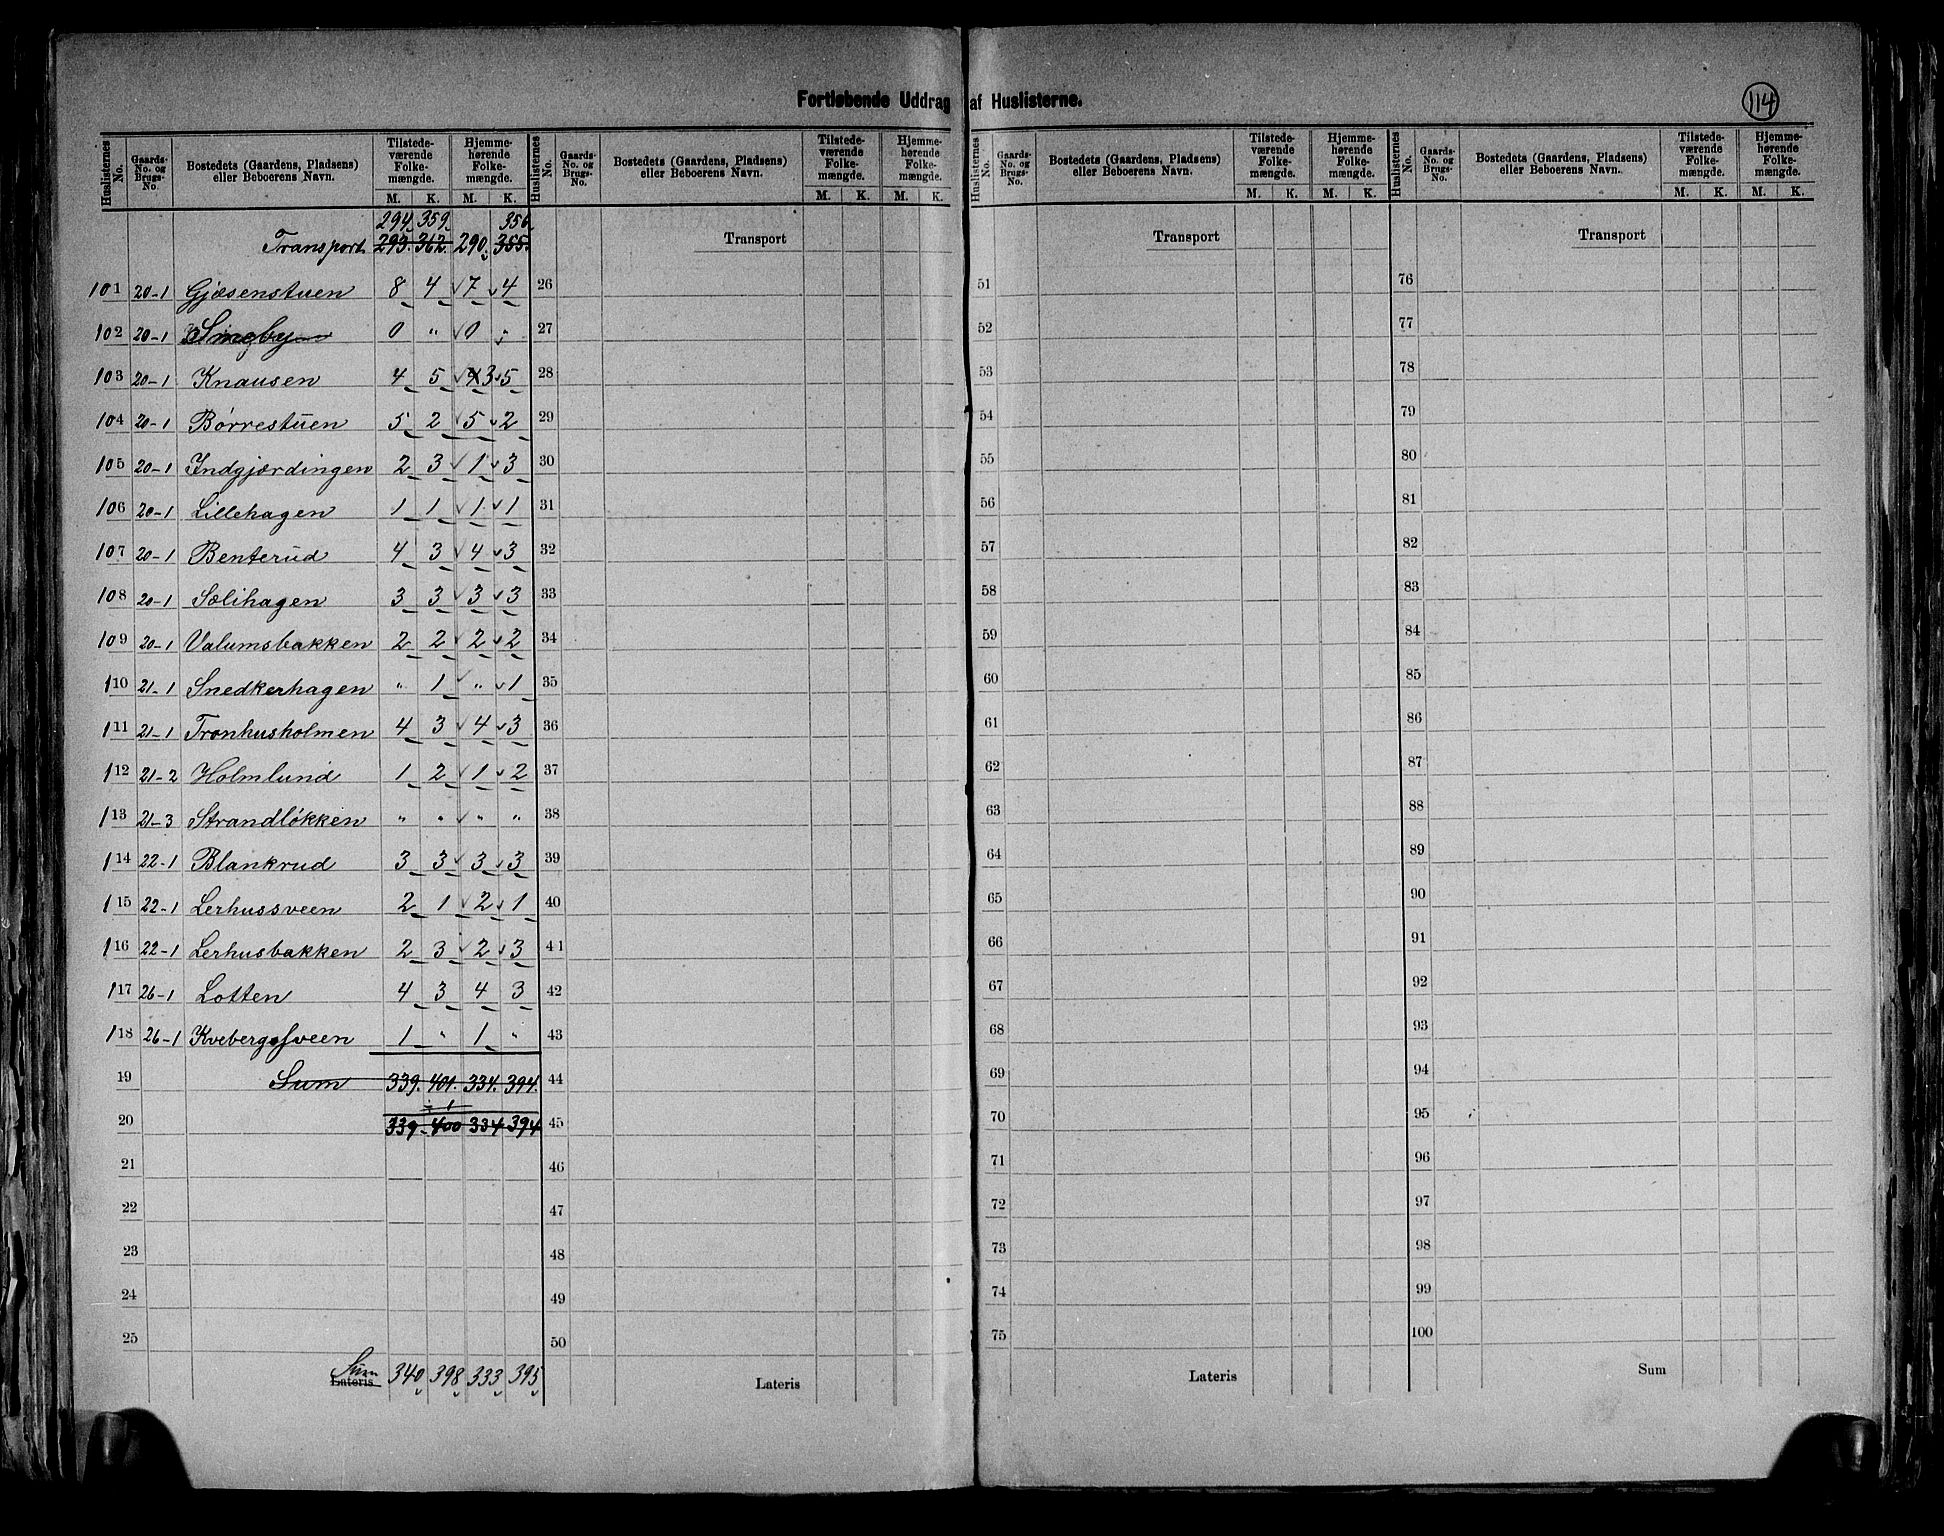 Fortløbende Uddrag af Huslisterne.
114
Huslisternes No. | Gaards-No. og Brugs-No. | Bostedets (Gaardens, Pladsens) eller Beboerens Navn. | Tilstedeværende Folkemængde. M. K. | Hjemmehørende Folkemængde. M. K.
Huslisternes No. | Gaards-No. og Brugs-No. | Bostedets (Gaardens, Pladsens) eller Beboerens Navn. | Tilstedeværende Folkemængde. M. K. | Hjemmehørende Folkemængde. M. K.
Huslisternes No. | Gaards-No. og Brugs-No. | Bostedets (Gaardens, Pladsens) eller Beboerens Navn. | Tilstedeværende Folkemængde. M. K. | Hjemmehørende Folkemængde. M. K.
Huslisternes No. | Gaards-No. og Brugs-No. | Bostedets (Gaardens, Pladsens) eller Beboerens Navn. | Tilstedeværende Folkemængde. M. K. | Hjemmehørende Folkemængde. M. K.
294. 359. 356.
Transport 293. 362. 290. 355. Transport Transport Transport
101 20-1 Gjæsenstuen 8 4 7 4 26 51 76
102 20-1 0 " 0 " 27 52 77
103 20-1 Knausen 4 5 4 3 5 28 53 78
104 20-1 Børrestuen 5 2 5 2 29 54 79
105 20-1 Indgjærdingen 2 3 1 3 30 55 80
106 20-1 Lillehagen 1 1 1 1 31 56 81
107 20-1 Benterud 4 3 4 3 32 57 82
108 20-1 Sælihagen 3 3 3 3 33 58 83
109 20-1 Valumsbakken 2 2 2 2 34 59 84
110 21-1 Snedkerhagen " 1 " 1 35 60 85
111 21-1 Tronhusholmen 4 3 4 3 36 61 86
112 21-2 Holmlund 1 2 1 2 37 62 87
113 21-3 Strandløkken " " " " 38 63 88
114 22-1 Blankrud 3 3 3 3 39 64 89
115 22-1 Lerhussveen 2 1 2 1 40 65 90
116 22-1 Lerhusbakken 2 3 2 3 41 66 91
117 26-1 Lotten 4 3 4 3 42 67 92
118 26-1 Kvebergssveen 1 " 1 " 43 68 93
19 Sum 339. 401. 334. 394. 44 69 94
÷ 1
20 339. 400 334 394 45 70 95
21 46 71 96
22 47 72 97
23 48 73 98
24 49 74 99
25 50 75 100
Sum
Lateris 340 398 333 395 Lateris Lateris Sum